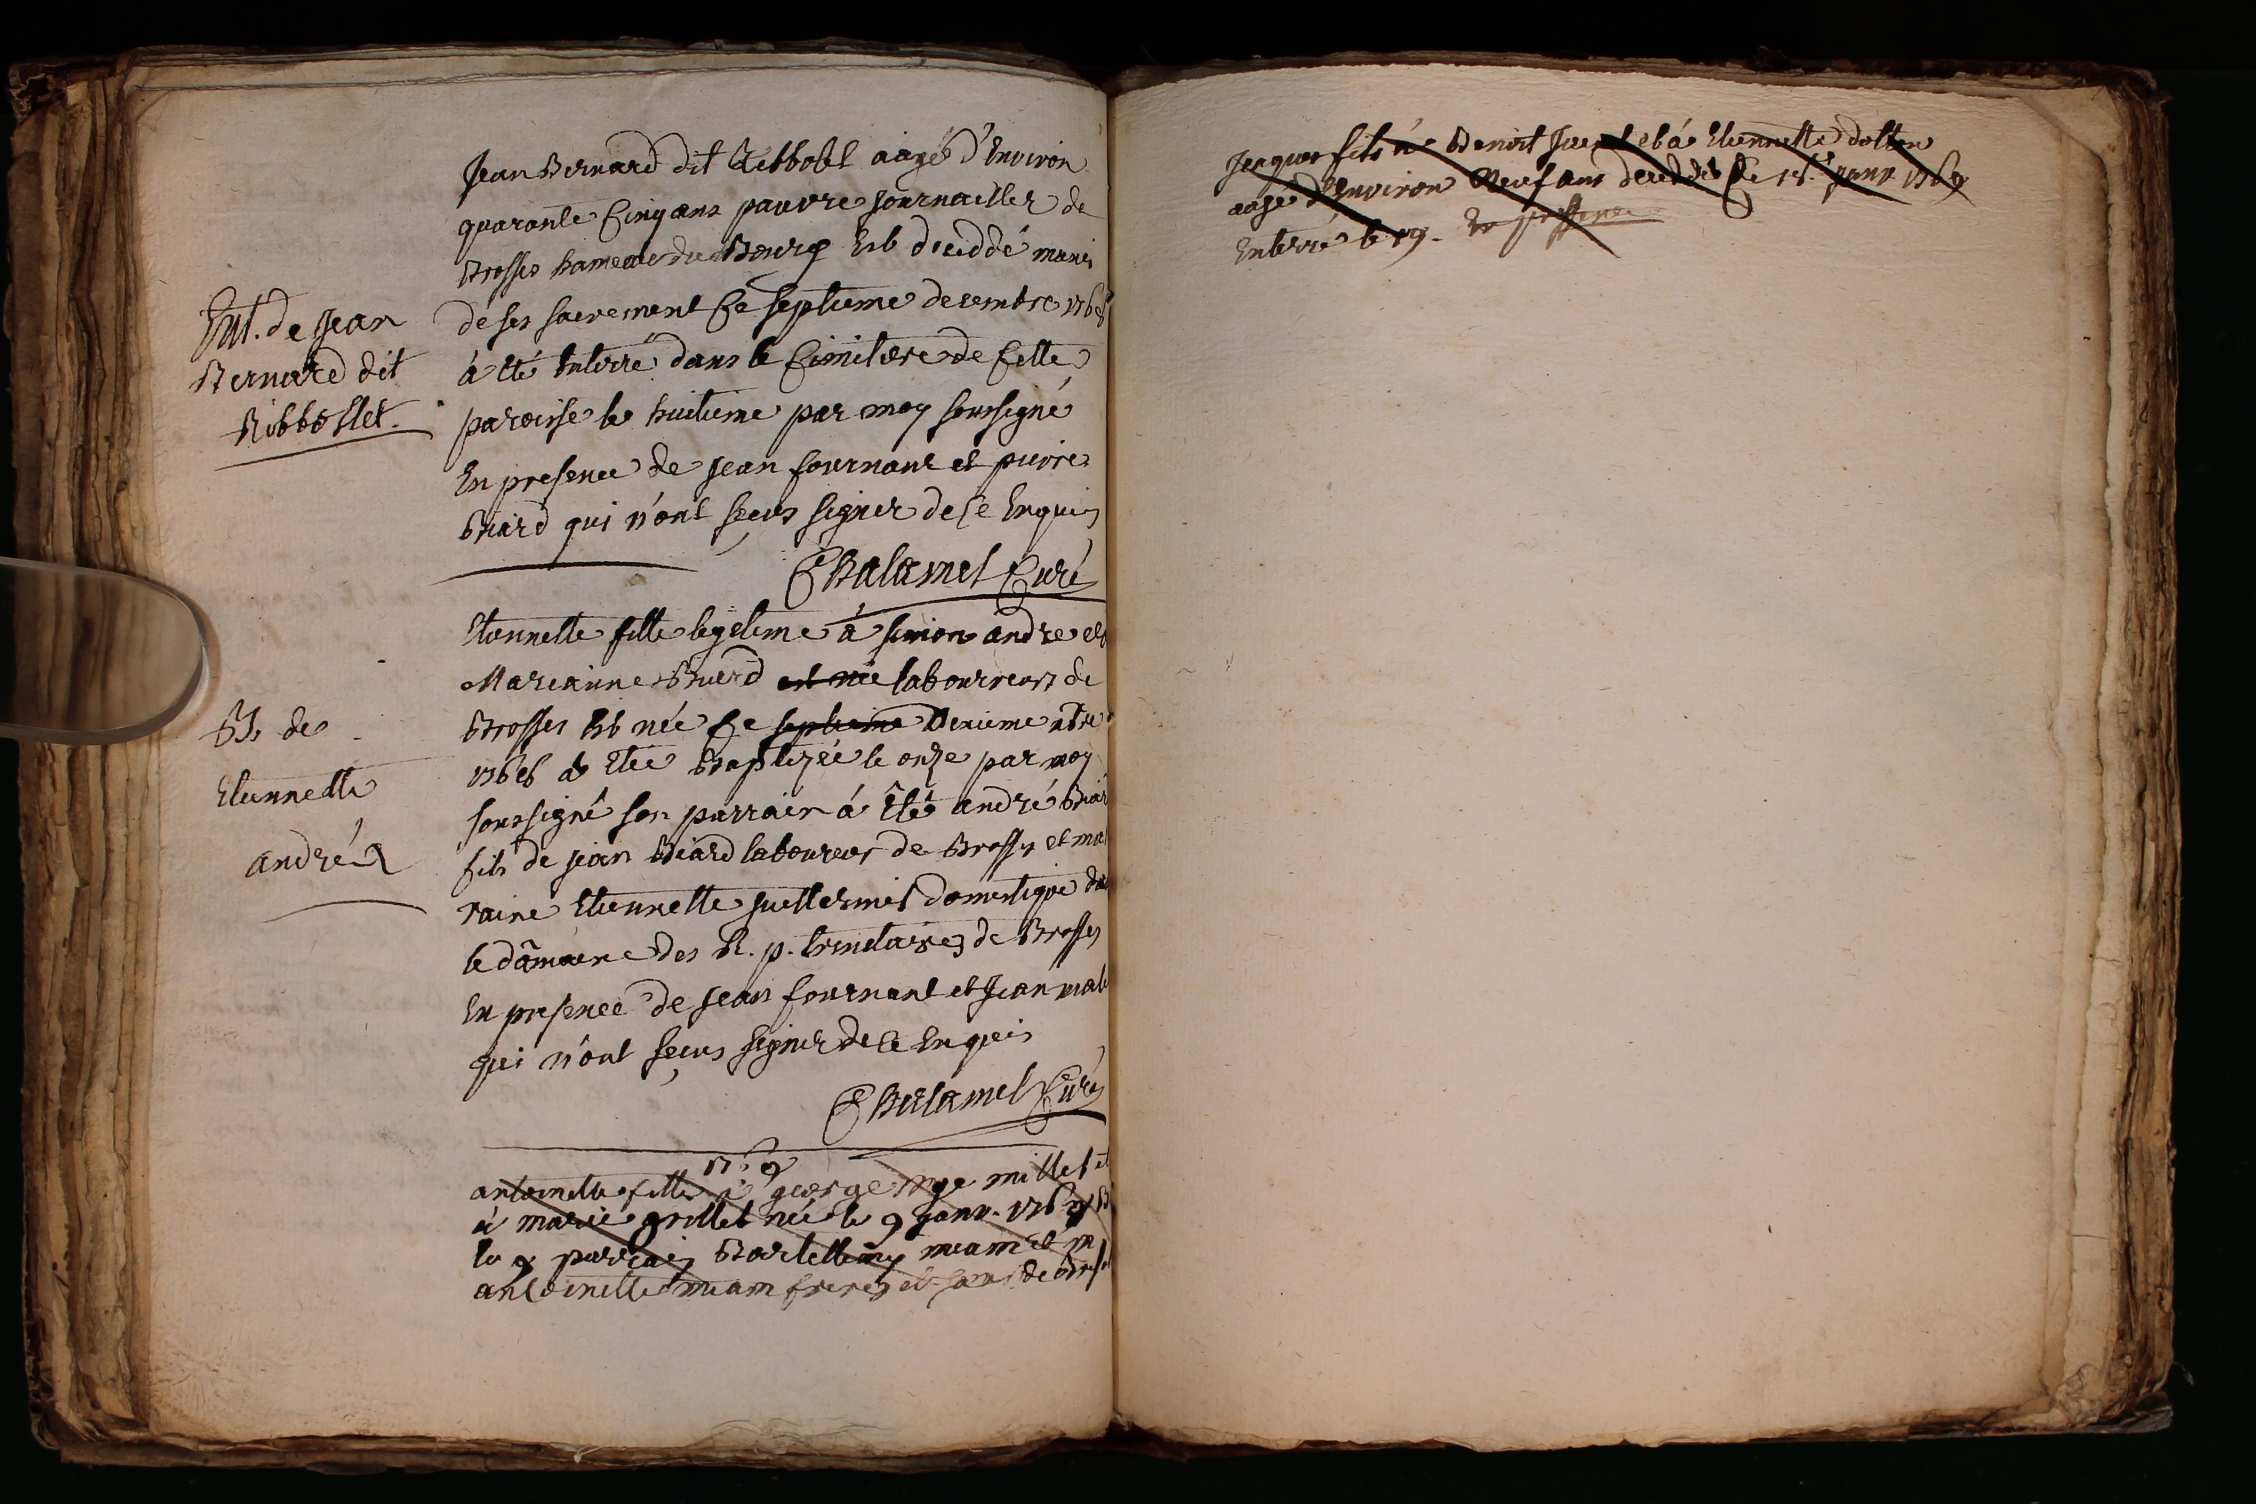 Ent. de Jean
Bernard dit
Ribbollet.
Jean Bernard dit Ribbolet aagé d'Environ
quarante Cinq ans pauvre journallier de
Brosses hameau du Bourg Est déceddé muni
de ses sacrement Ce septieme decembre 1768
à été Enterré dans le Cimitiere de Cette
paroisse le huitieme par moy soussigné
En presence de Jean fournant et pierre
Biard qui n'ont sçeus signer de ce Enquis
Chalamel Curé
B. de
Etiennette
andré
Etiennette fille legitime à simon andre et
Mareanne Biard est née laboureurs de
Brosses Est née Ce septieme dixieme xbre
1768 a Etée Baptizée le onze par moy
soussigné son parrain à Été andré Biar
fils de jean Biard laboureur de Brosses et ma
raine Etiennette juillermet domestique da
le dâmaine des R. p. trinitaires de Brosses
En presence de Jean fournant et Jean
qui n'ont sçeus signer de ce Enquis
Chalamel Curé
1769
antoinette fille à george millet et
à marie grillet née le 9 janv. 1769 B
le 9 parrain Bartellemy miam et m
antoinette miam freres et de
Jacques fils à Benoit et à Etiennette
aagé d'Environ Neuf ans deceddé Ce 18. janv. 1769
Enterré le 19. En presence